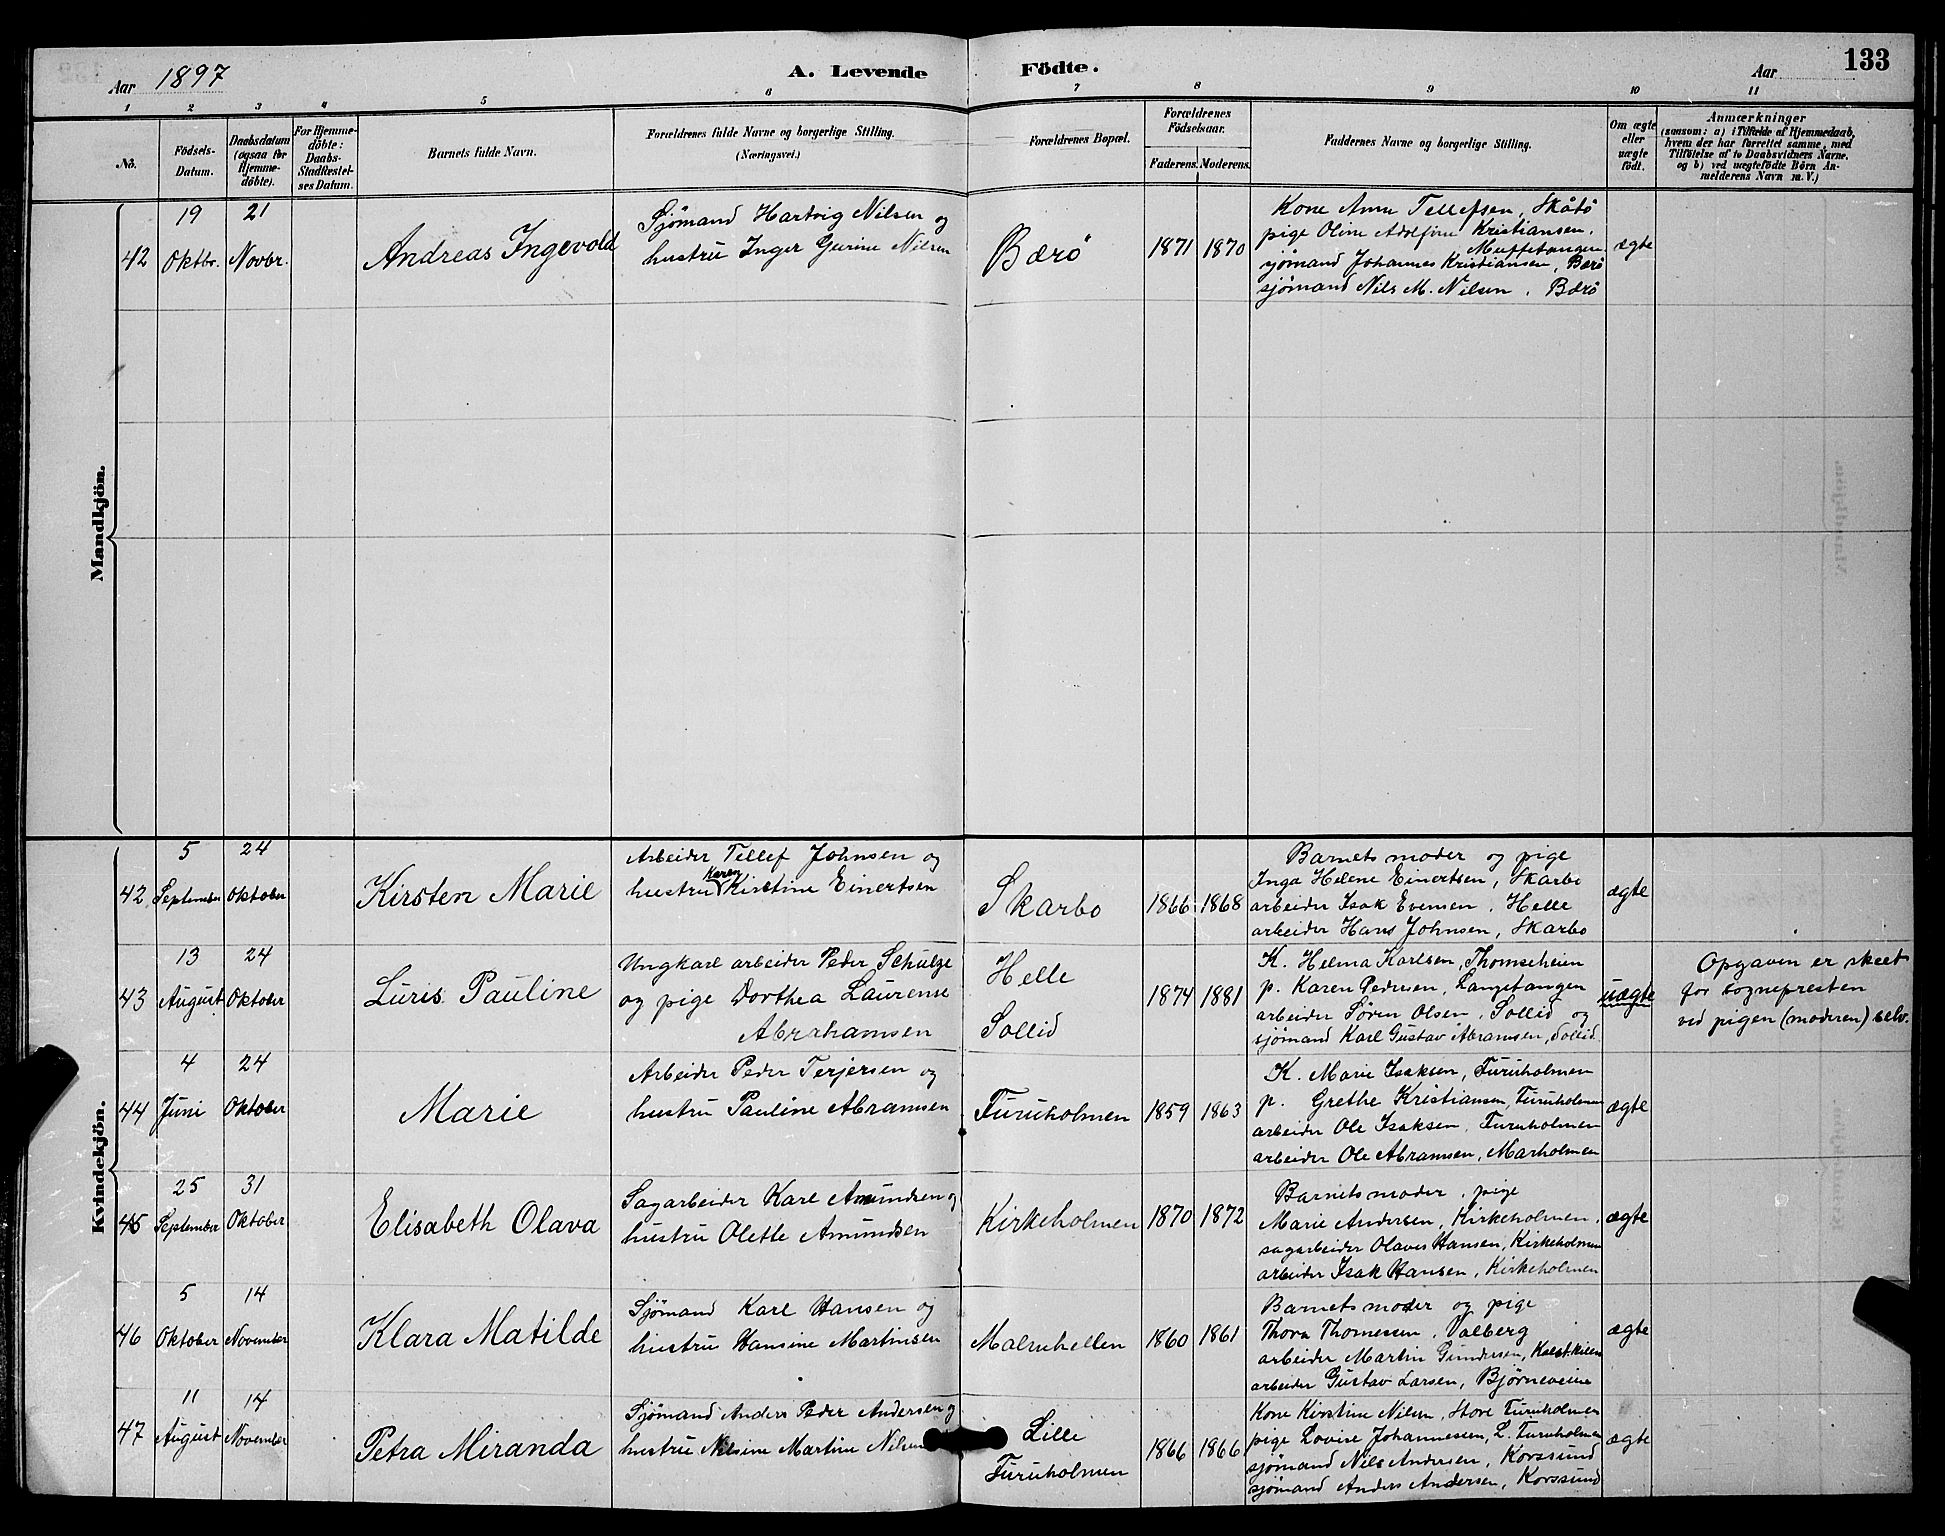 Aar 1897
A. Levende Födte.
Aar
133
1 2 3 4 5 6 7 8 9 10 11
No.
Födsels-
Datum.
Daabsdatum
(ogsaa for
Hjemme-
döbte).
For Hjemme-
döbte:
Daabs-
Stadfæstel-
ses Datum.
Barnets fulde Navn.
Forældrenes fulde Navne og borgerlige Stilling.
(Næringsvei.)
Forældrenes Bopæl.
Forældrenes
Födselsaar.
Faderens. Moderens.
Faddernes Navne og borgerlige Stilling.
Om ægte
eller
uægte
født.
Anmærkninger
(saasom: a) i Tilfælde af Hjemmedaab,
hvem der har forrettet samme, med
Tilföielse af to Daabsvidners Navne.
og b) ved uægtefödte Börn An-
melderens Navn m. V.)
Mandkjön.
42
19
Oktbr.
21
Novbr.
Andreas Ingevold
Sjömand Hartvig Nilsen og
hustru Inger Gurine Nilsen
Bærö
1871
1870
Kone Anne Tellefsen, Skåtö
pige Oline Adolfine Kristiansen,
Muffetangen
sjömand Johannes Kristiansen, Bærö
sjömand Nils M. Nilsen. Bærö
ægte
Kvindekjön.
42
5
September
24
Oktober
Kirsten Marie
Arbeider Tellef Johnsen og
hustru Karen Kirstine Einertsen
Skarbo
1866
1868
Barnets moder og pige
Inga Helene Einertsen, Skarbo
arbeider Isak Evensen. Helle
arbeider Hans Johnsen, Skarbo
ægte
43
13
August
24
Oktober
Luris Pauline
Ungkarl arbeider Peder Schulze
og pige Dorthea Laurense
Abrahamsen
Helle
Sollid
1874
1881
K. Helma Karlsen, Thomseheien
p. Karen Pedersen, Langetangen
arbeider Søren Olsen. Sollid og
sjömand Karl Gustav Abramsen, Sollid.
uægte
Opgaven er skeet
for sognepresten
ved pigen (moderen) selv.
44
4
Juni
24
Oktober
Marie
Arbeider Peder Terjersen og
hustru Pauline Abramsen
Furuholmen
1859
1863
K. Marie Isaksen, Furuholmen
p. Grethe Kristiansen, Furuholmen
arbeider Ole Isaksen. Furuholmen
arbeider Ole Abramsen, Marholmen
ægte
45
25
September
31
Oktober
Elisabeth Olava
Sagarbeider Karl Amundsen og
hustru Olette Amundsen
Kirkeholmen
1870
1872
Barnets moder, pige
Marie Andersen, Kirkeholmen,
sagarbeider Olaves Hansen, Kirkeholmen
arbeider Isak Hansen, Kirkeholmen
ægte
46
5
Oktober
14
November
Klara Matilde
Sjömand Karl Hansen og
hustru Hansine Martinsen
Malmhellen
1860
1861
Barnets moder og pige
Thora Thomessen. Valberg
arbeider Martin Gundersen,
arbeider Gustav Larsen, Bjørneveien
ægte
47
11
August
14
November
Petra Miranda
Sjömand Anders Peder Andersen og
hustru Nilsine Martine Nilsen
Lille
Furuholmen
1866
1866
Kone Kirstine Nilsen, Store Furuholmen
pige Lovise Johannessen, L. Furuholmen
sjömand Nils Andersen, Korssund
sjömand Anders Andersen, Korssund
ægte